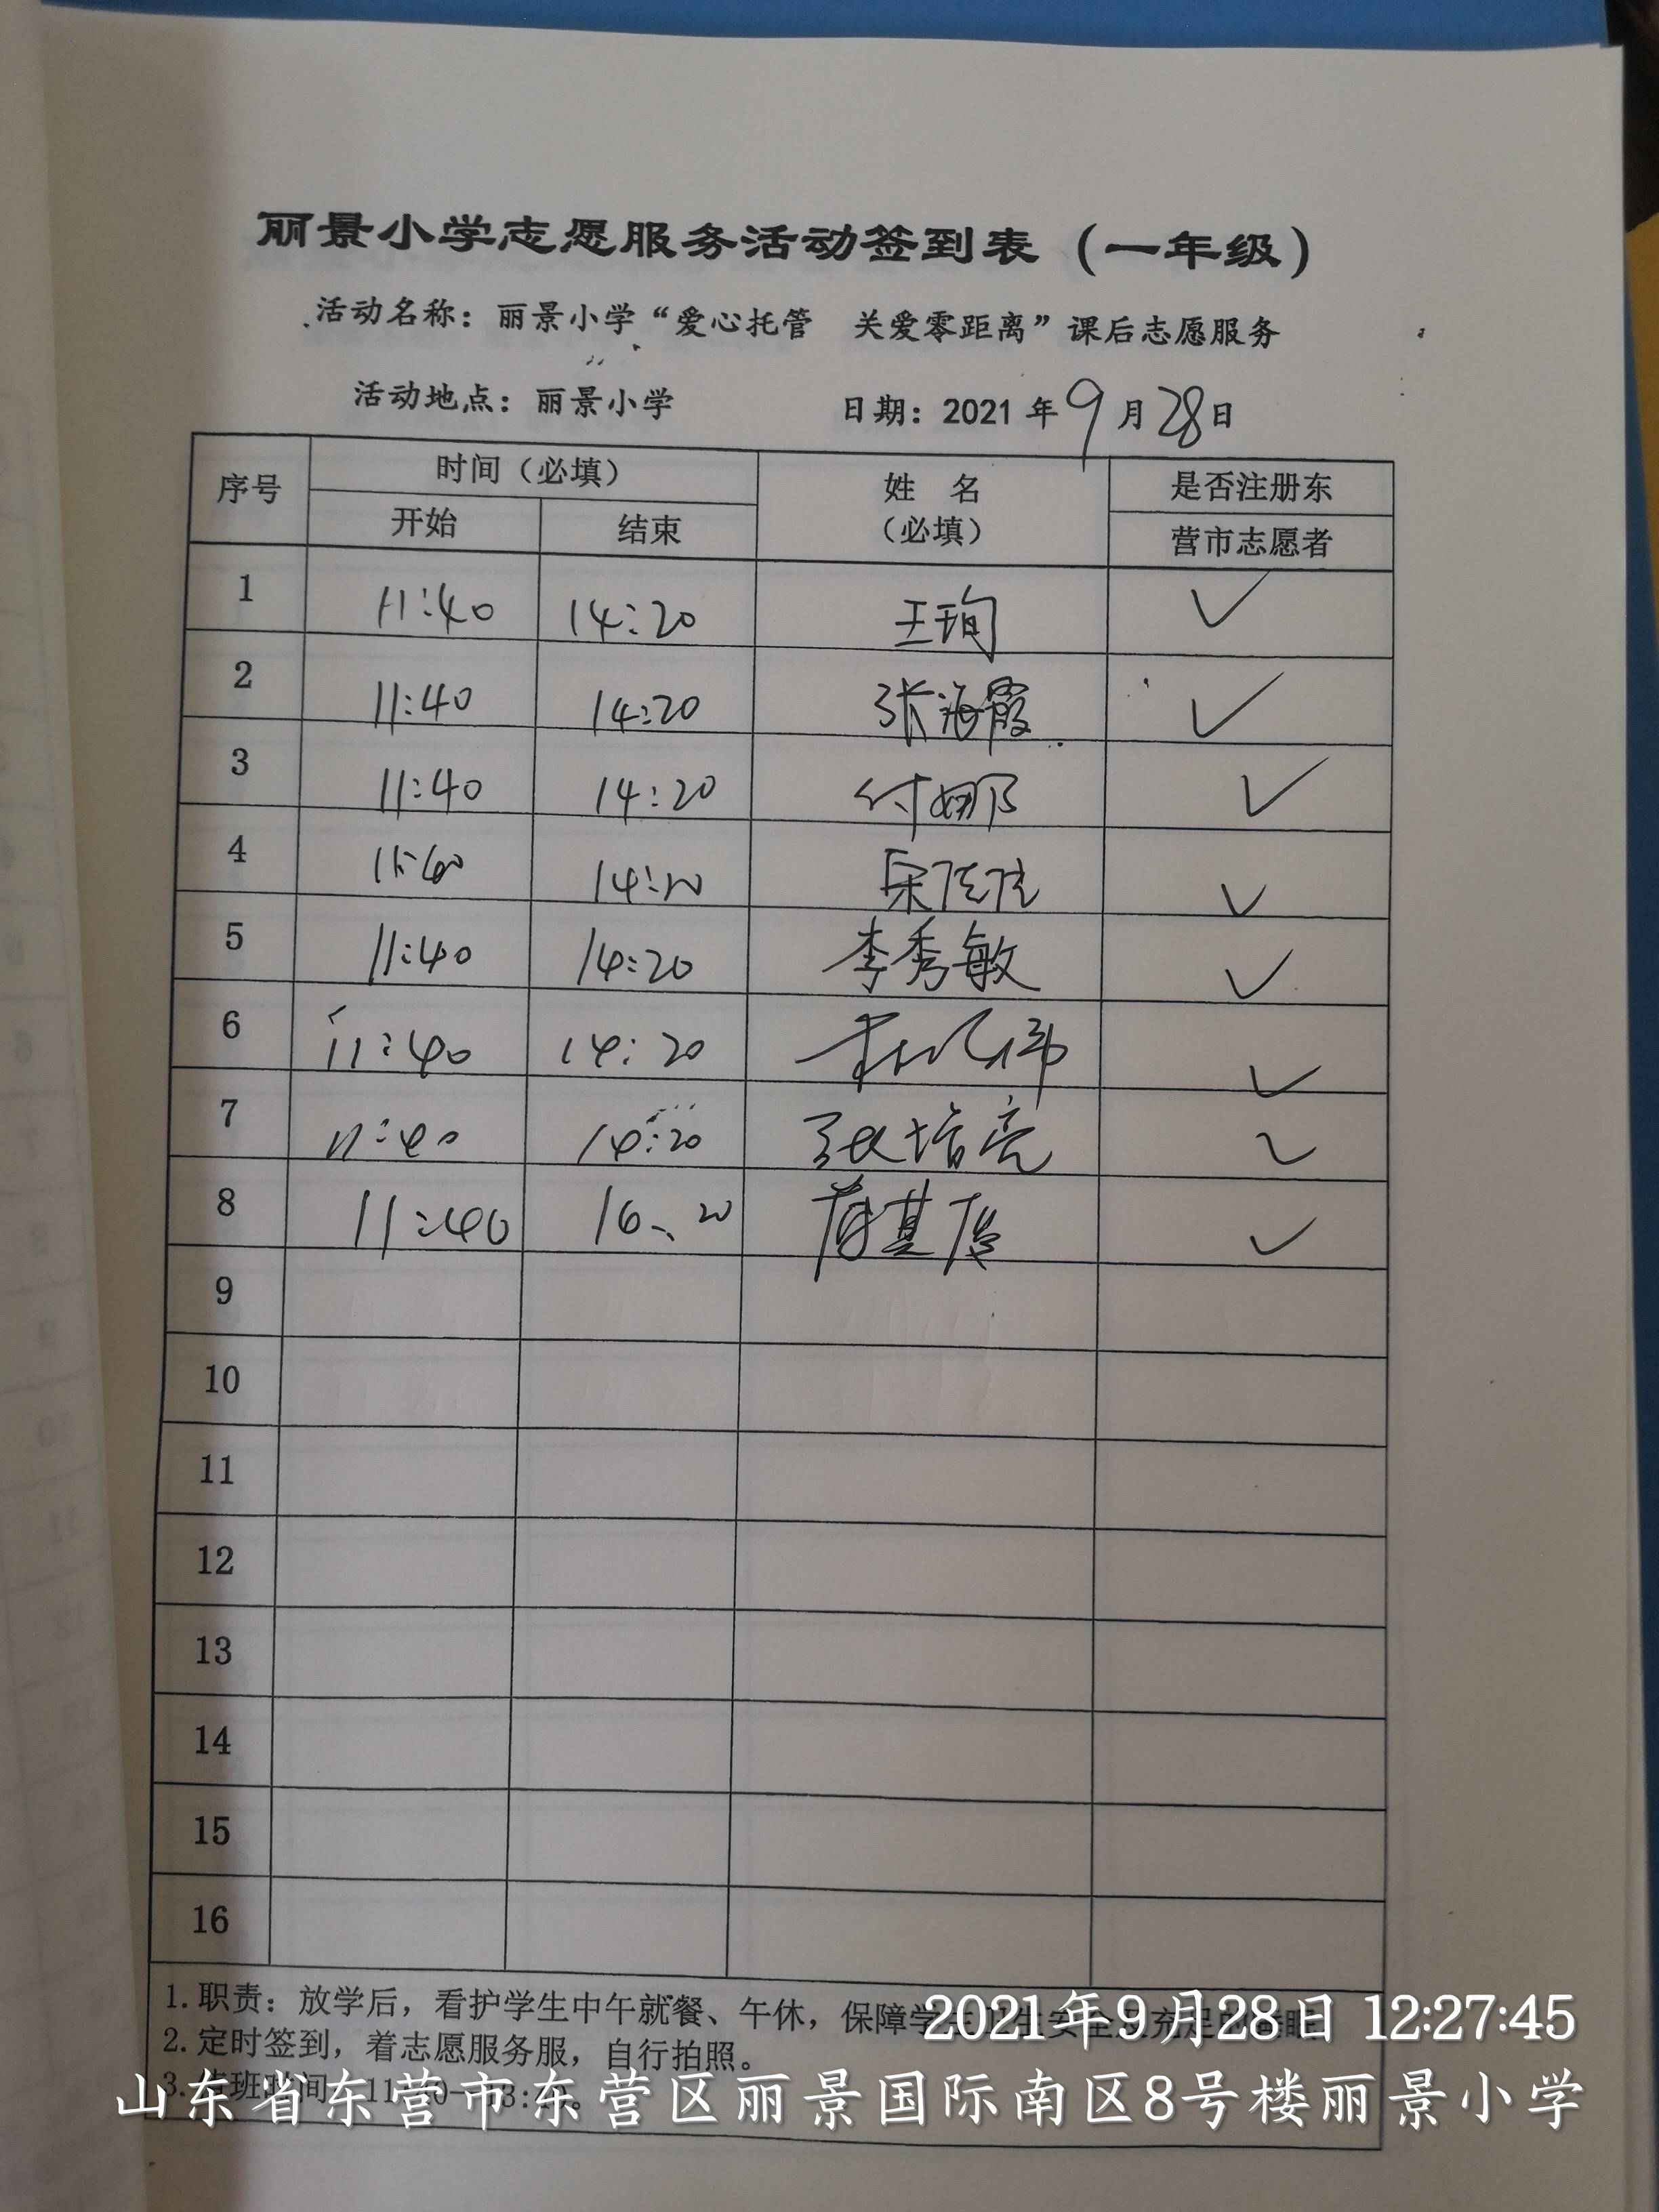 丽景小学志愿服务活动签到表（一年级）
活动名称：丽景小学“爱心托管 关爱零距离”课后志愿服务
活动地点：丽景小学 日期：2021 年 9 月 28 日
序号 时间（必填） 姓 名 是否注册东
开始 结束 （必填） 营市志愿者
1 11:40 14:20 王珣 ✓
2 11:40 14:20 张海霞 ✓
3 11:40 14:20 付娜 ✓
4 11:40 14:20 宋佳佳 ✓
5 11:40 14:20 李秀敏 ✓
6 11:40 14:20 ✓
7 11:40 14:20 张培亮 ✓
8 11:40 ✓
9
10
11
12
13
14
15
16
1. 职责：放学后，看护学生中午就餐、午休，保障学
2021年9月28日 12:27:45
2. 定时签到，着志愿服务服，自行拍照。
山东省东营市东营区丽景国际南区8号楼丽景小学